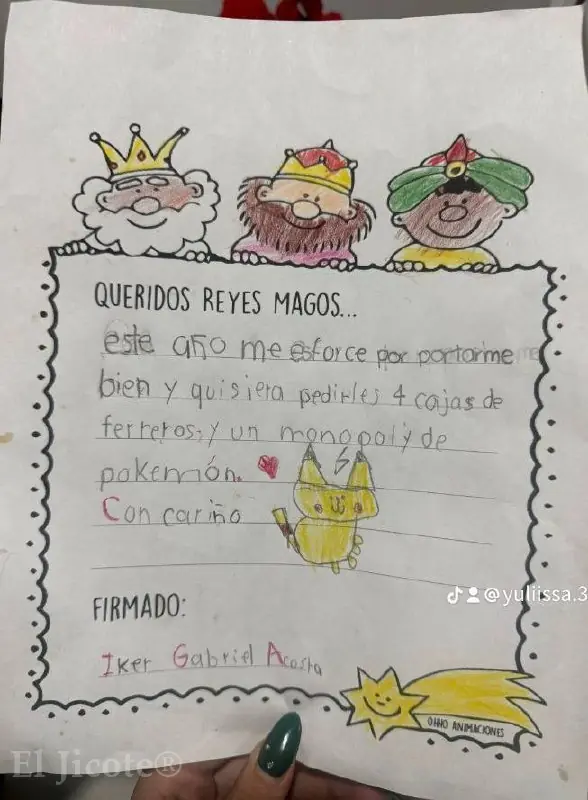 QUERIDOS REYES MAGOS...
este año me esforce por portarme
bien y quisiera pedirles 4 cajas de
ferreros, y un monopoly de
pokemón.
Con cariño
@yuliissa.3
FIRMADO:
Iker Gabriel Acosta
OHHO ANIMACIONES
El Jicote®